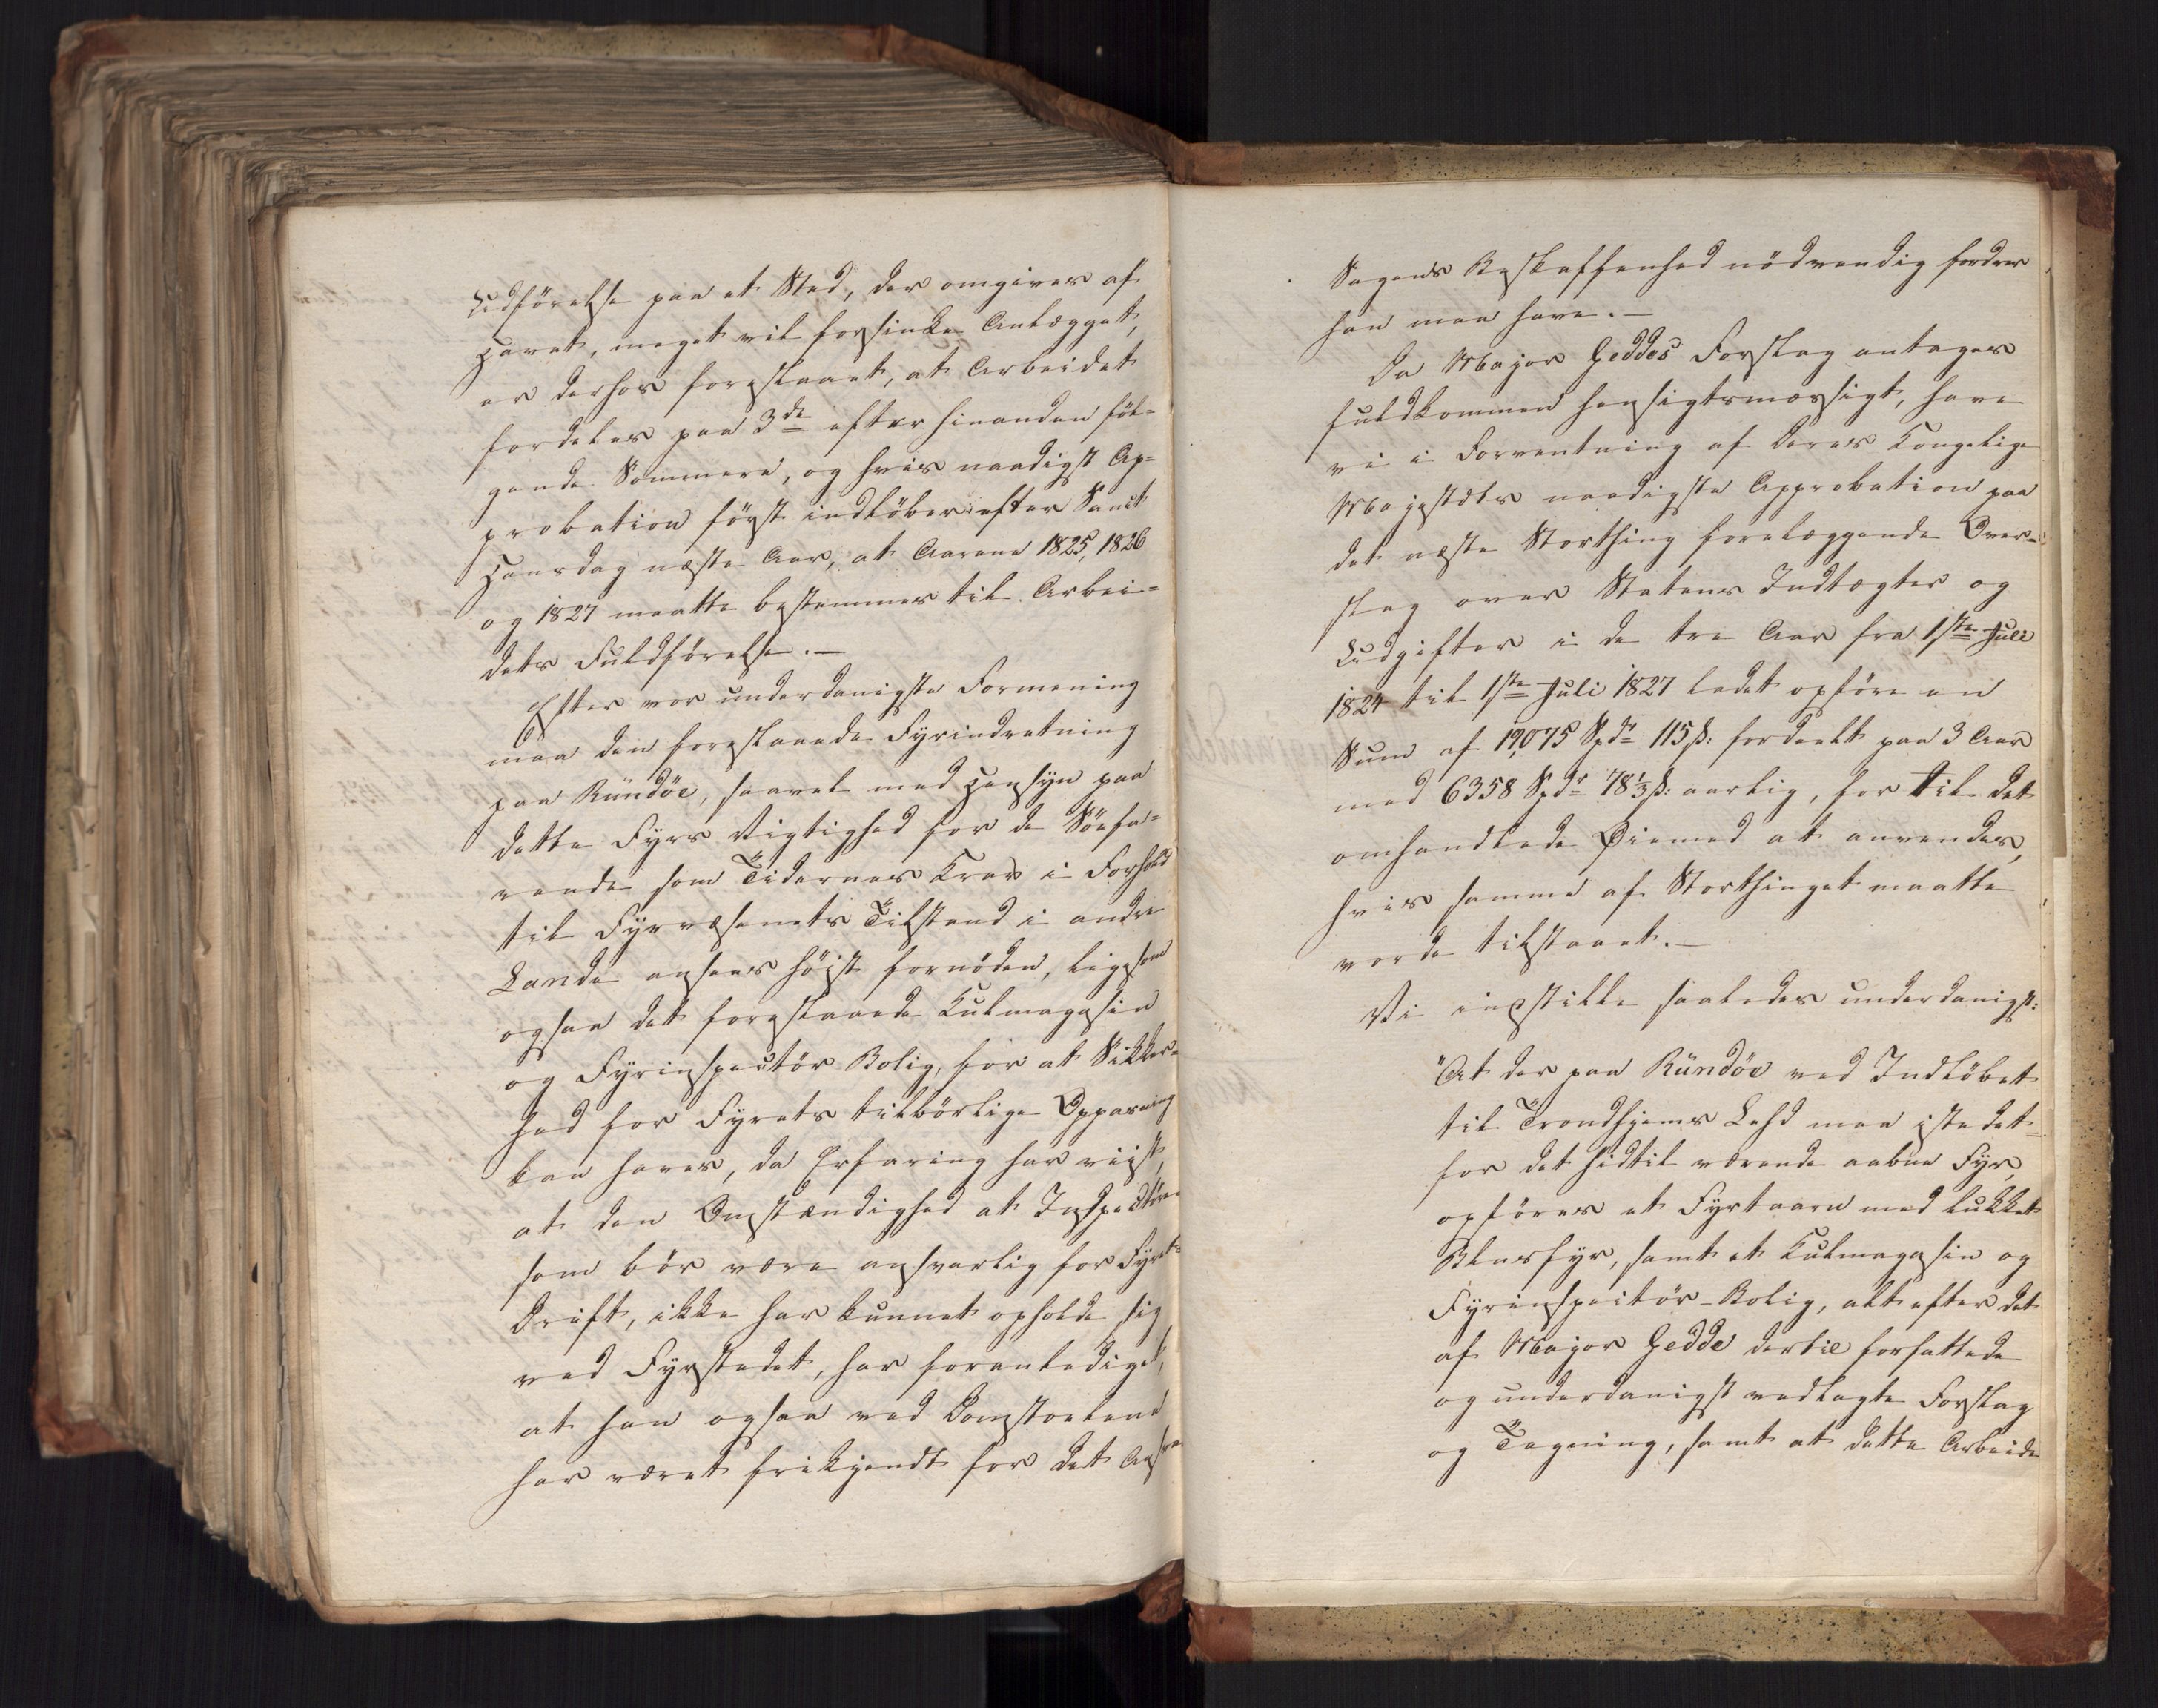 Udførelse paa et Sted, der omgives af
Havet, meget vil forsinke Anlægget,
er derhos foreslaaet, at Arbeidet
fordeles paa 3de efter hinanden föl-
gende Sommere, og hvis naadigst Ap-
probation först indlöber efter Sanct
Hansdag næste Aar, at Aarene 1825, 1826
og 1827 maatte bestemmes til Arbei-
dets Fuldförelse. —
Efter vor underdanigste Formening
maa den foreslaaede Fyrindretning
paa Rundöe, saavel med Hensyn paa
dette Fyrs Vigtighed for de Söefa-
rende som Tidernes Krav i Forhold
til Fyrvæsenets Tilstand i andre
Lande ansees höist fornöden, ligesom
ogsaa det foreslaaede Kulmagasin
og Fyrinspectör Bolig, for at Sikker-
hed for Fyrets tilbörlige Opparning
kan haves, da Erfaring har viist,
at den Omstændighed at Inspectören
som bör være ansvarlig for Fyrets
Drift, ikke har kunnet opholde sig
ved Fyrstedet, har foranlediget,
at han ogsaa ved Domstolene
har været frikjendt for det Ansvar
Sagens Beskaffenhed nödvendig fordrer
han maa have. —
Da Major Geddes Forslag antages
fuldkommen hensigtsmæssigt, have
vi i Forventning af Deres Kongelige
Majestæts naadigste Approbation paa
det næste Storthing forelæggende Over-
slag over Statens Indtægter og
Udgifter i de tre Aar fra 1ste Juli
1824 til 1ste Juli 1827 ladet opföre en
Sum af 19,075 Spdr 115 ß: fordeelt paa 3 Aar
med 6358 Spdr 78 1/3 ß: aarlig, for til det
omhandlede Öiemed at anvendes,
hvis samme af Storthinget maatte
vorde tilstaaet. —
Vi indstille saaledes underdanigst:
"At der paa Rundöe ved Indlöbet
til Trondhjems Lehd maa istedet-
for det hidtil værende aabne Fyr,
opföres et Fyrtaarn med lukket
Blusfyr, samt et Kulmagasin og
Fyrinspectör-Bolig, alt efter det
af Major Gedde dertil forfattede
og underdanigst vedlagte Forslag
og Tegning, samt at dette Arbeide